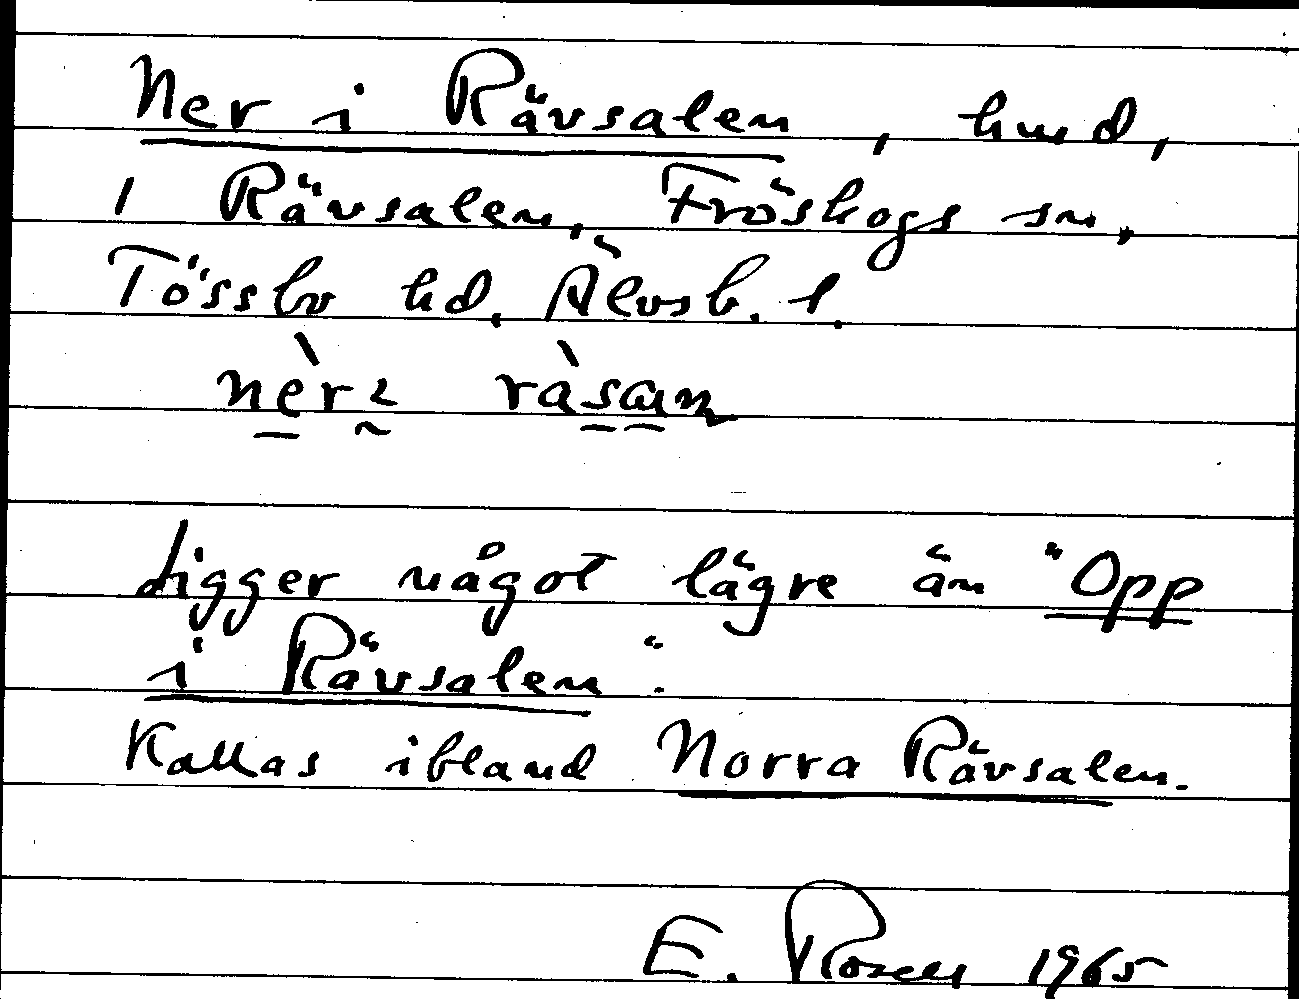 Ner i Rävsalen, hmd,
i Rävsalen, Fröskogs sn,
Tössbo hd, Älvsb. l.
Ligger något lägre än "Opp
i Rävsalen".
Kallas ibland Norra Rävsalen.
E. Rosell 1965